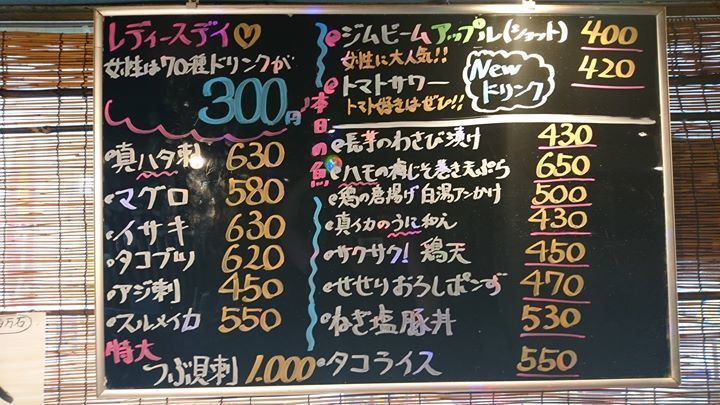 レディースデイ♡
女性は70種ドリンクが
300円
本日の魚
真ハタ刺 630
マグロ 580
イサキ 630
タコブツ 620
アジ刺 450
スルメイカ 550
特大
つぶ貝刺 1.000
ジムビームアップル(ショット) 400
女性に大人気!!
トマトサワー 420
トマト好きはぜひ!!
New
ドリンク
長芋のわさび漬け 430
ハモの梅じそ巻き天ぷら 650
鶏の唐揚げ白湯アンかけ 500
真イカのうに和え 430
サクサク!鶏天 450
せせりおろしポンず 470
ねぎ塩豚丼 530
タコライス 550